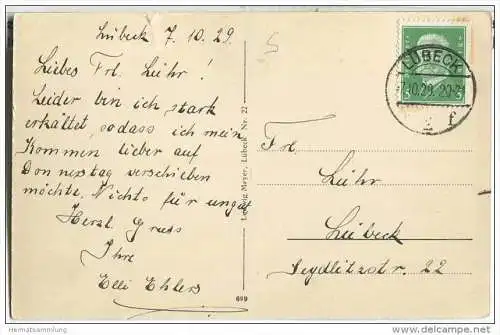 Lübeck 7.10.29.
Liebes Frl. Lühr!
Leider bin ich stark
erkältet, sodass ich mein
Kommen lieber auf
Donnerstag verschieben
möchte. Nichts für ungut
Herzl. Gruss
Ihre
Elli Ehlers
699
Ludwig Meyer, Lübeck, Nr. 22
5
LÜBECK
7.10.29. 20-21
f
Frl.
Lühr
Lübeck
Seydlitzstr. 22
Heimatsammlung
www.heimatsammlung.de